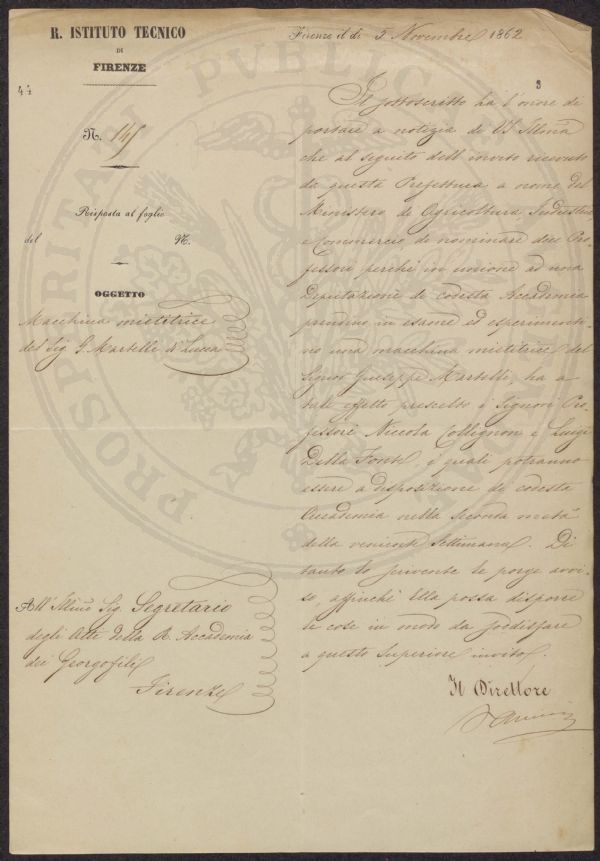 R. ISTITUTO TECNICO
DI
FIRENZE
44
N. 145
Risposta al foglio
del N.
OGGETTO
Macchina mietitrice
del Sig G. Martelli di Lucca
All' Illmo Sig. Segretario
degli Atti della R. Accademia
dei Georgofili
Firenze
Firenze il dì 5 Novembre 1862
3
Il sottoscritto ha l'onore di
portare a notizia di VS Illma
che al seguito dell' invito ricevuto
da questa Prefettura a nome del
Ministero di Agricoltura Industria
e Commercio, di nominare due Pro-
fessori perchè in unione ad una
Deputazione di codesta Accademia
prendino in esame ed esperimenti-
no una macchina mietitrice del
Signor Giuseppe Martelli, ha a
tale effetto prescelto i Signori Pro-
fessori Niccola Collignon e Luigi
Della Fonte, i quali potranno
essere a disposizione di codesta
Accademia nella seconda metà
della veniente Settimana. Di
tanto lo scrivente le porge avvi-
so, affinchè Ella possa disporre
le cose in modo da sodisfare
a questo superiore invito.
Il Direttore
PROSPERITATI PUBLICAE